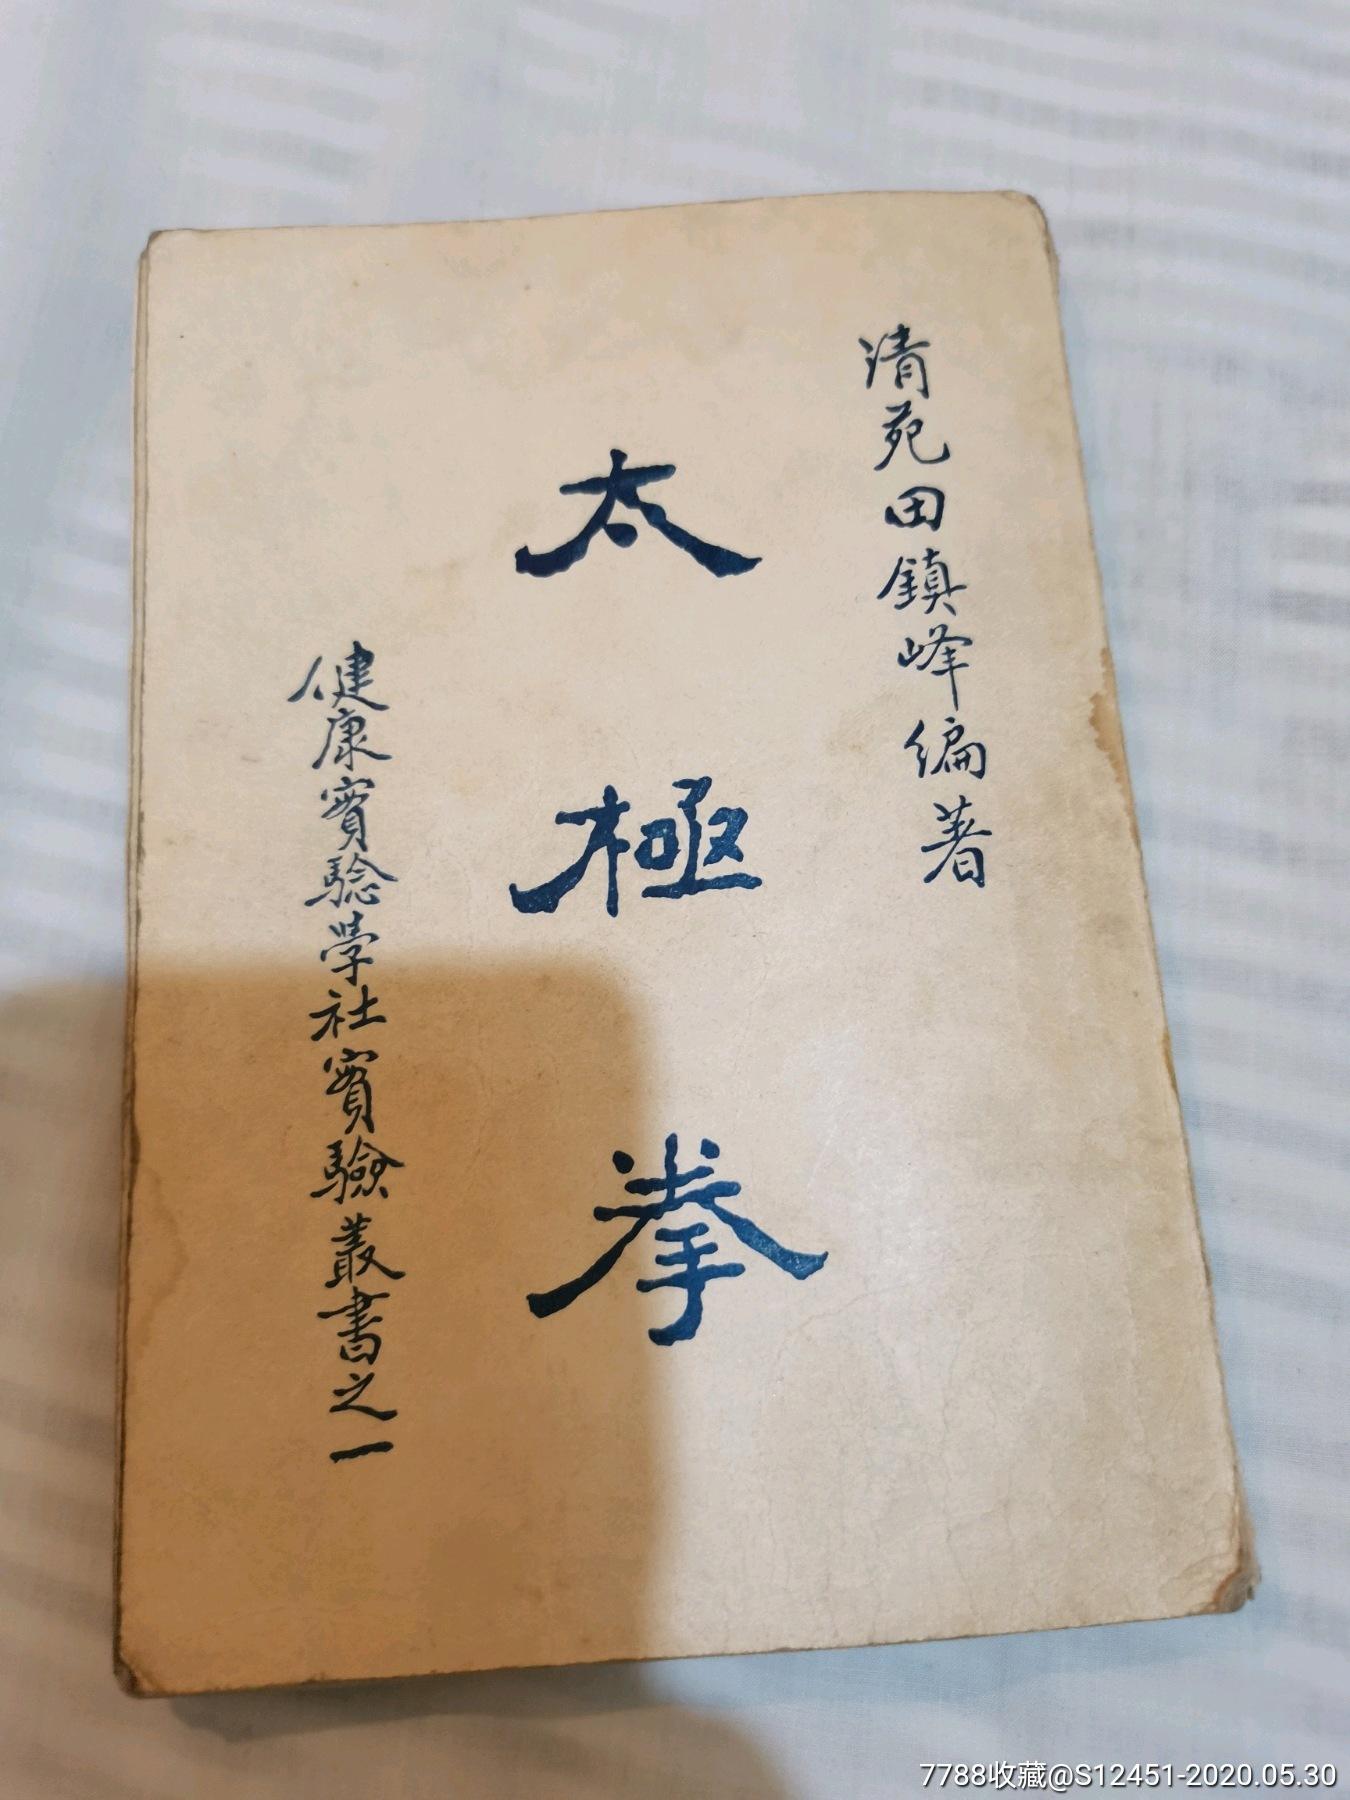 清苑田鎮峰編著
太極拳
健康實驗學社實驗叢書之一
7788收藏@S12451-2020.05.30